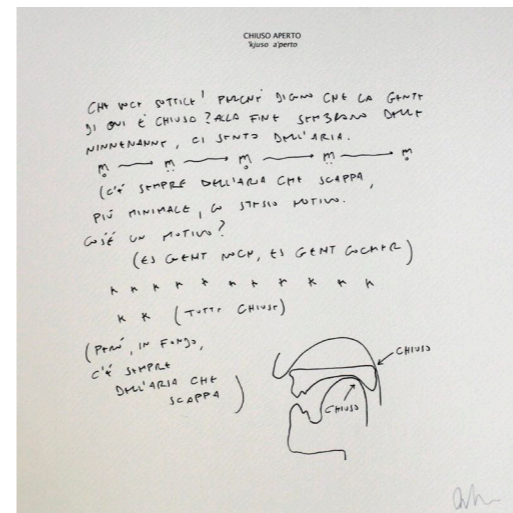 CHIUSO APERTO
'kjuso a'perto
CHE VOCE SOTTILE! PERCHÉ DICONO CHE LA GENTE
DI QUI È CHIUSA? ALLA FINE SEMBRANO DELLE
NINNENANNE, CI SENTO DELL'ARIA.
m m m m m
(C'È SEMPRE DELL'ARIA CHE SCAPPA,
PIÙ MINIMALE, LO STESSO MOTIVO.
COS'È UN MOTIVO?
(ES GEHT NOCH, ES GEHT LOCKER)
k k k k k k k k k k
k k (TUTTE CHIUSE)
(PERÒ, IN FONDO,
C'È SEMPRE
DELL'ARIA CHE
SCAPPA)
CHIUSO
CHIUSO